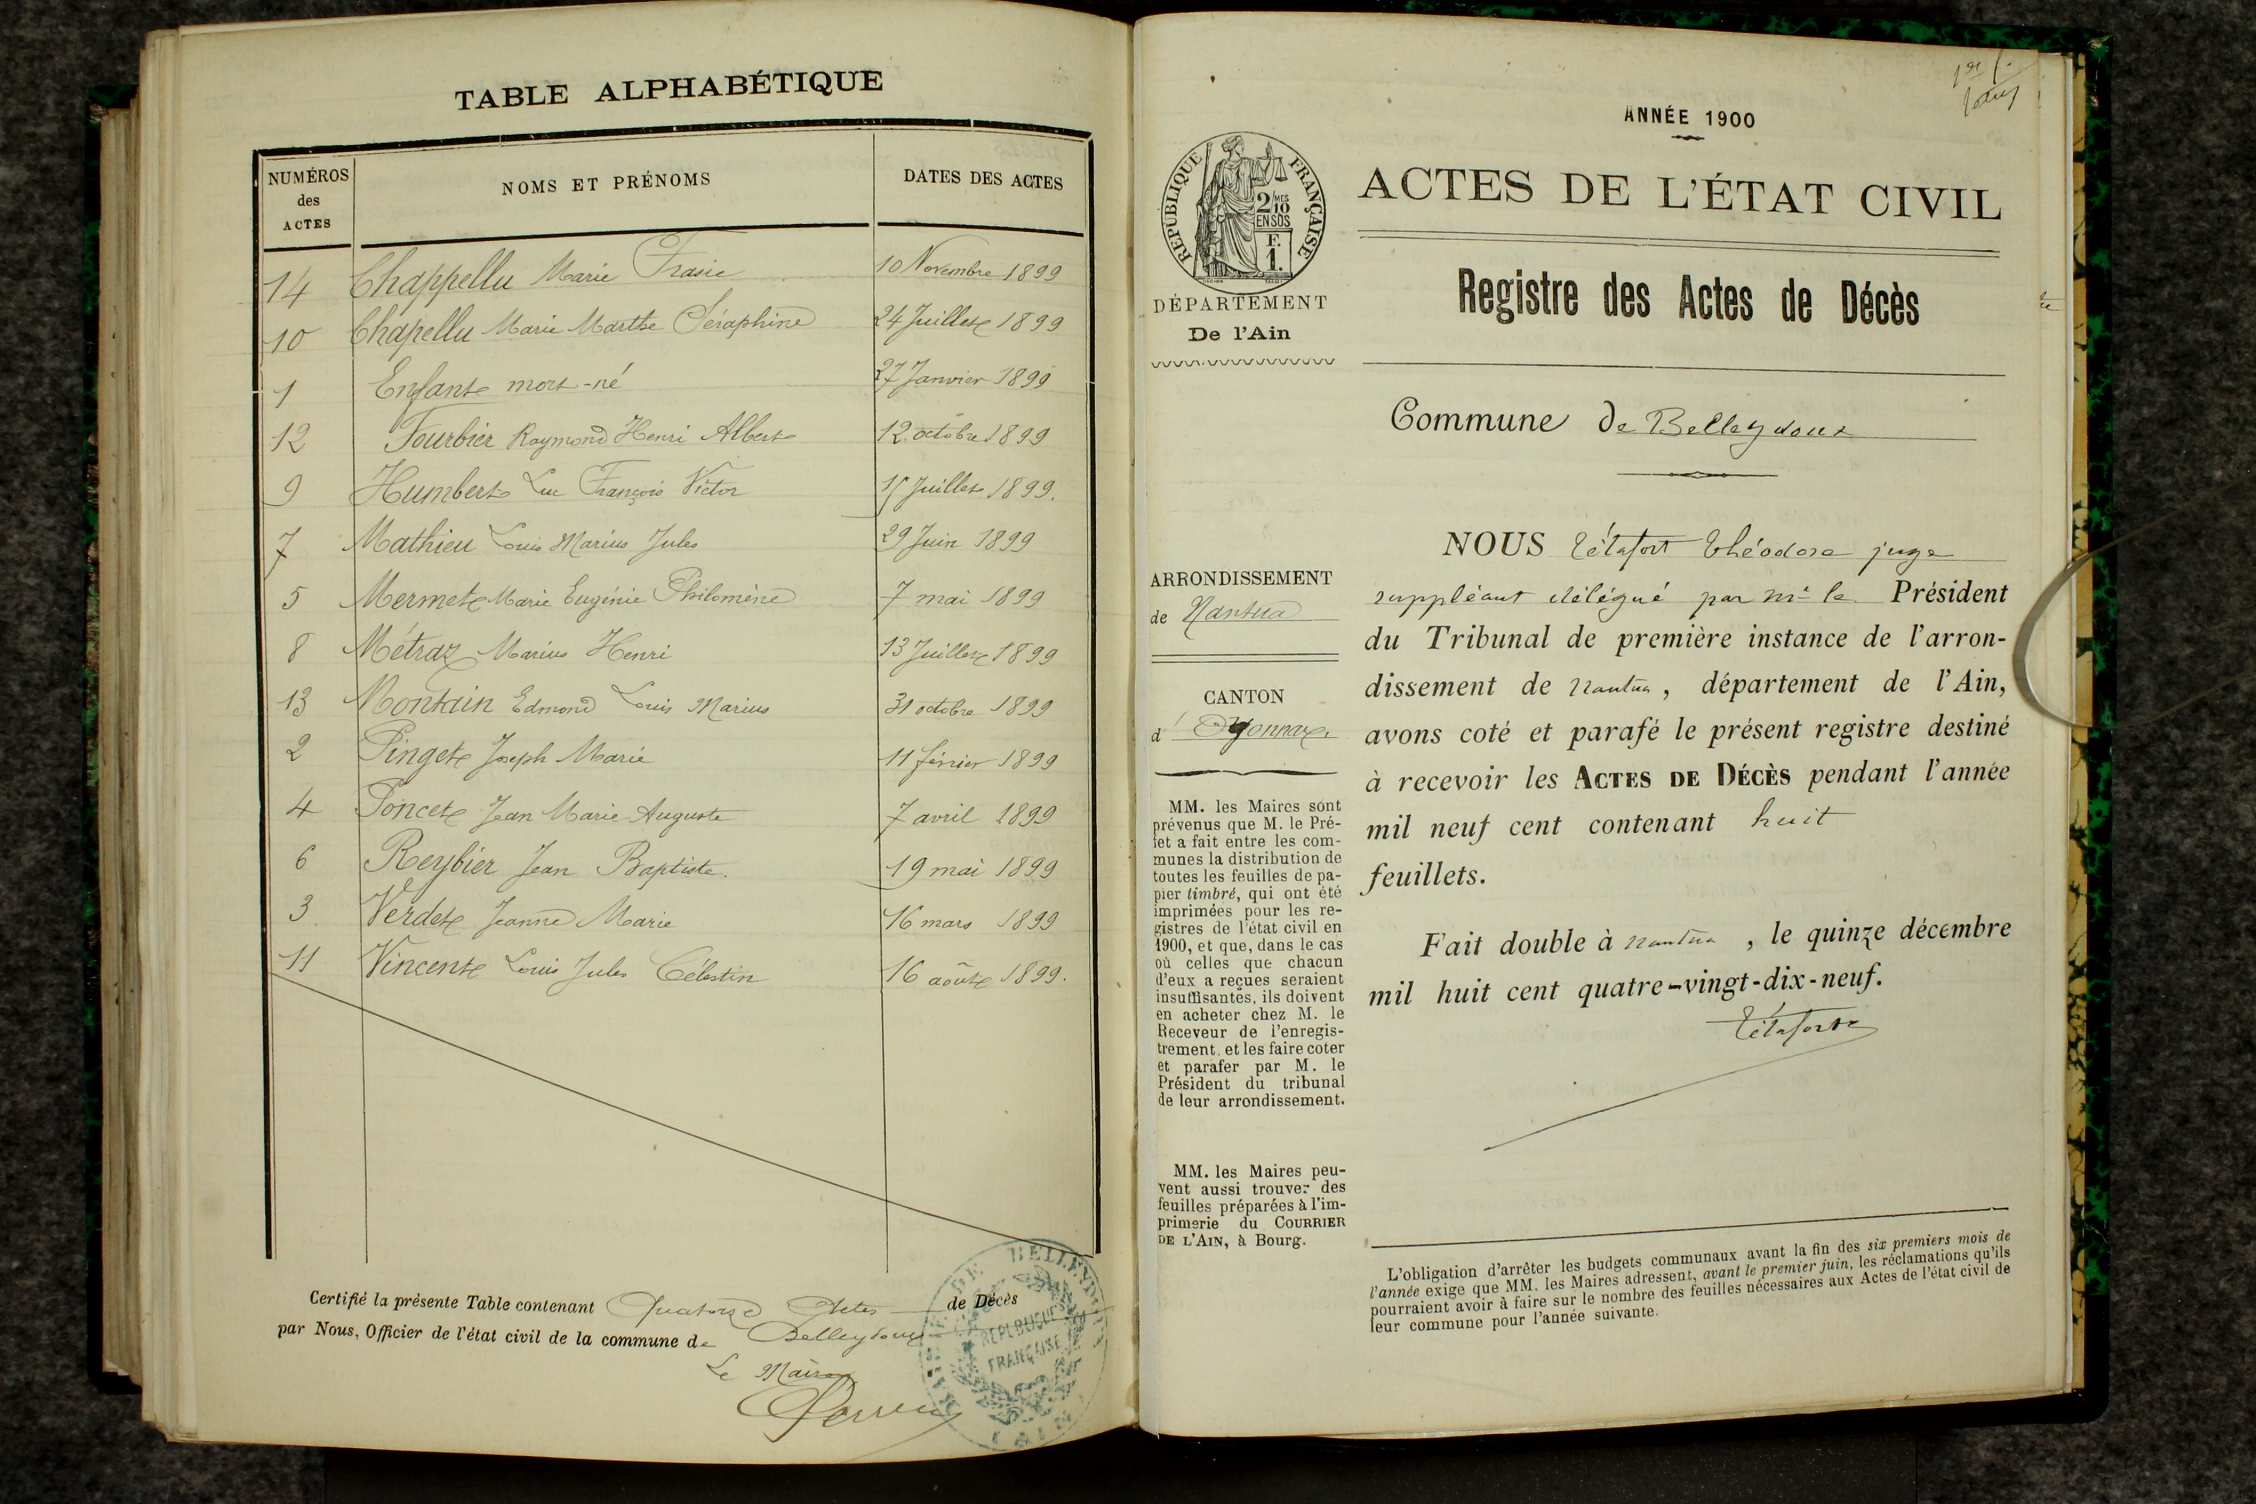 TABLE ALPHABÉTIQUE
NUMÉROS des ACTES
NOMS ET PRÉNOMS
DATES DES ACTES
14 Chappellu Marie Frasie 10 Novembre 1899
10 Chapellu Marie Marthe Séraphine 24 Juillet 1899
1 Enfant mort-né 27 Janvier 1899
12 Fourbier Raymond Henri Albert 12 octobre 1899
9 Humbert Luc François Victor 15 Juillet 1899.
7 Mathieu Louis Marius Jules 29 Juin 1899
5 Mermet Marie Eugénie Philomène 7 mai 1899
8 Métraz Marius Henri 13 Juillet 1899
13 Montain Edmond Louis Marius 31 octobre 1899
2 Pinget Joseph Marie 11 février 1899
4 Poncet Jean Marie Auguste 7 avril 1899
6 Reybier Jean Baptiste. 19 mai 1899
3 Verdet Jeanne Marie 16 mars 1899
11 Vincent Louis Jules Célestin 16 août 1899.
Certifié la présente Table contenant Quatorze Actes de Décès
par Nous, Officier de l'état civil de la commune de Belleydoux
Le Maire
MAIRIE DE BELLEYDOUX
RÉPUBLIQUE
FRANÇAISE
AIN
ANNÉE 1900
ACTES DE L'ÉTAT CIVIL
RÉPUBLIQUE FRANÇAISE
2/10 MES
EN SUS
F.
1.
DÉPARTEMENT
De l'Ain
Registre des Actes de Décès
Commune de Belleydoux
ARRONDISSEMENT
de Nantua
CANTON
d'Oyonnax.
MM. les Maires sont
prévenus que M. le Pré-
fet a fait entre les com-
munes la distribution de
toutes les feuilles de pa-
pier timbré, qui ont été
imprimées pour les re-
gistres de l'état civil en
1900, et que, dans le cas
où celles que chacun
d'eux a reçues seraient
insuffisantes, ils doivent
en acheter chez M. le
Receveur de l'enregis-
trement, et les faire coter
et parafer par M. le
Président du tribunal
de leur arrondissement.
MM. les Maires peu-
vent aussi trouver des
feuilles préparées à l'im-
primerie du COURRIER
DE L'AIN, à Bourg.
NOUS Tétafort Théodore juge
suppléant délégué par Mr le Président
du Tribunal de première instance de l'arron-
dissement de Nantua, département de l'Ain,
avons coté et parafé le présent registre destiné
à recevoir les ACTES DE DÉCÈS pendant l'année
mil neuf cent contenant huit
feuillets.
Fait double à Nantua, le quinze décembre
mil huit cent quatre-vingt-dix-neuf.
Tétafort
L'obligation d'arrêter les budgets communaux avant la fin des six premiers mois de
l'année exige que MM. les Maires adressent, avant le premier juin, les réclamations qu'ils
pourraient avoir à faire sur le nombre des feuilles nécessaires aux Actes de l'état civil de
leur commune pour l'année suivante.